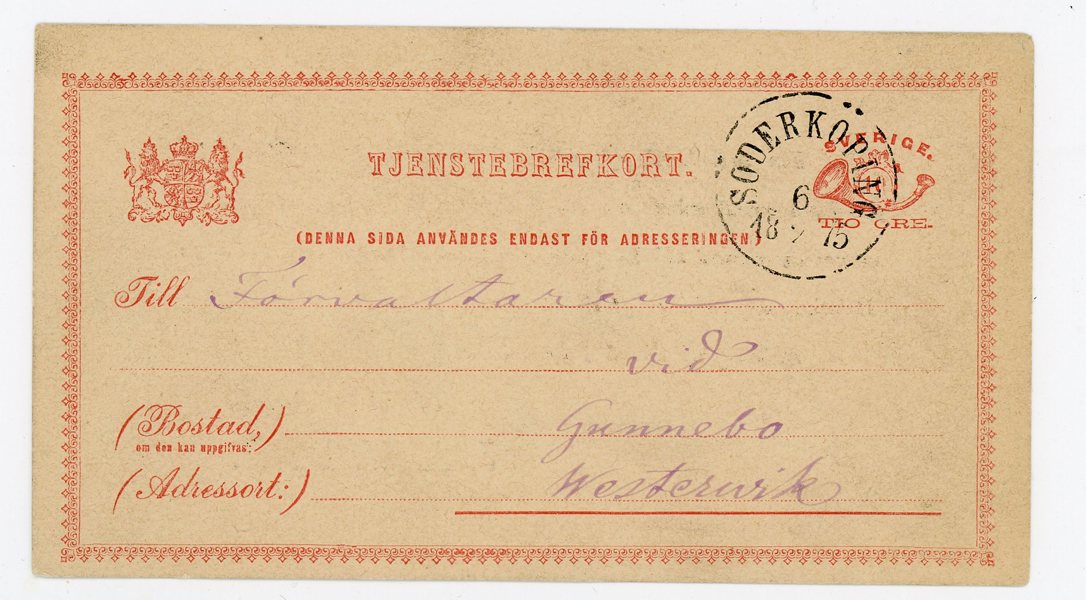 TJENSTEBREFKORT.
SÖDERKÖPING
6
18 75
SVERIGE.
TIO ÖRE.
(DENNA SIDA ANVÄNDES ENDAST FÖR ADRESSERINGEN)
Till Förvaltaren
vid
(Bostad,) Gunnebo
om den kan uppgifvas:
(Adressort:) Westerwik